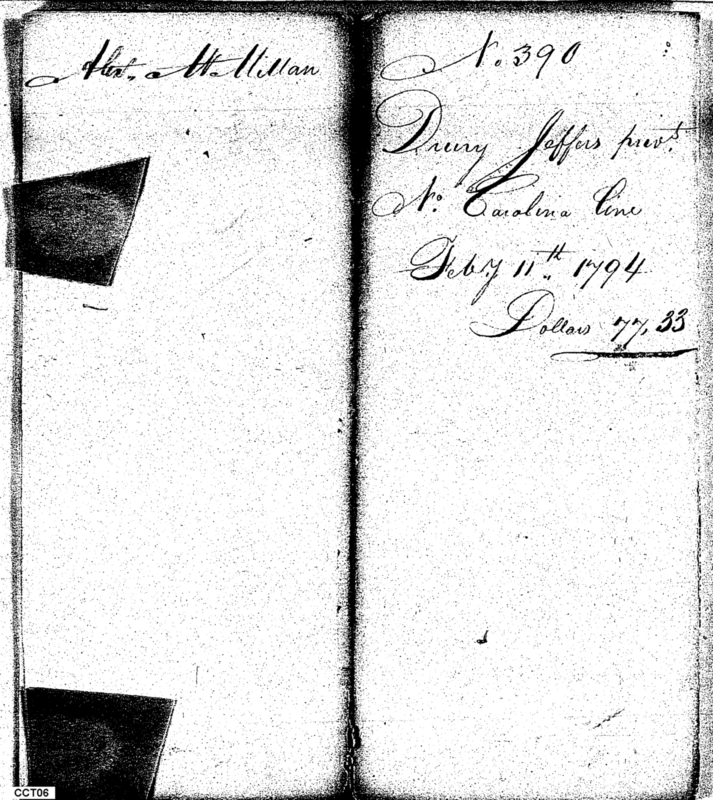 Alexr. McMillan
No. 390
Drury Jeffers privt.
No. Carolina line
Feby 11th. 1794
Dollars 77,33
CCT06